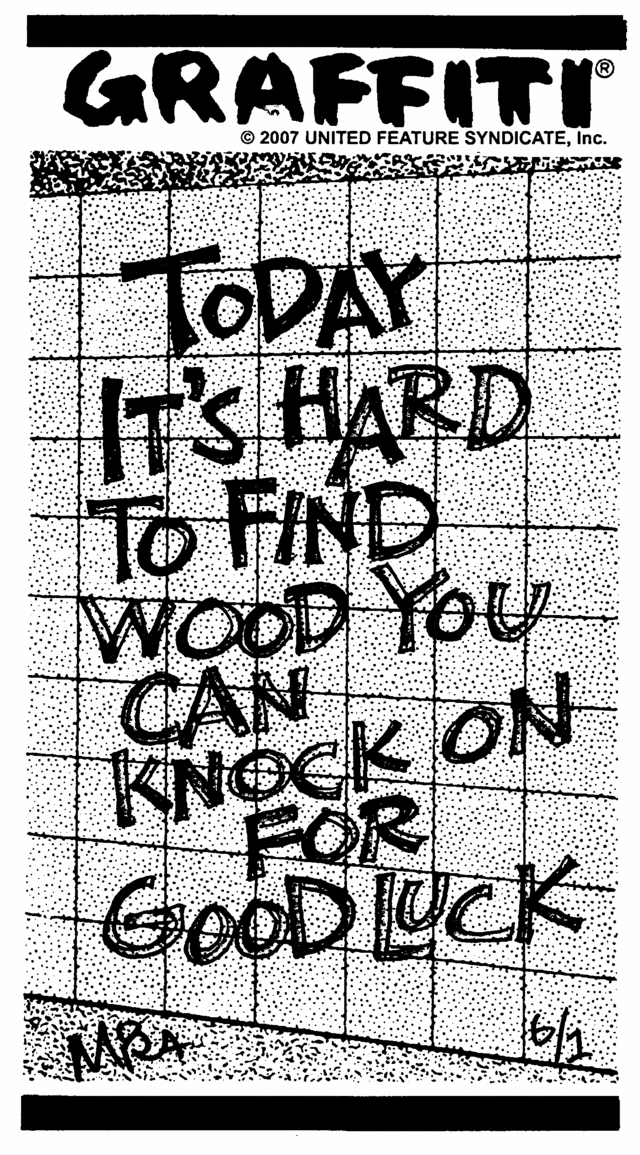 GRAFFITI®
© 2007 UNITED FEATURE SYNDICATE, Inc.
TODAY
IT'S HARD
TO FIND
WOOD YOU
CAN
KNOCK ON
FOR
GOOD LUCK
6/1